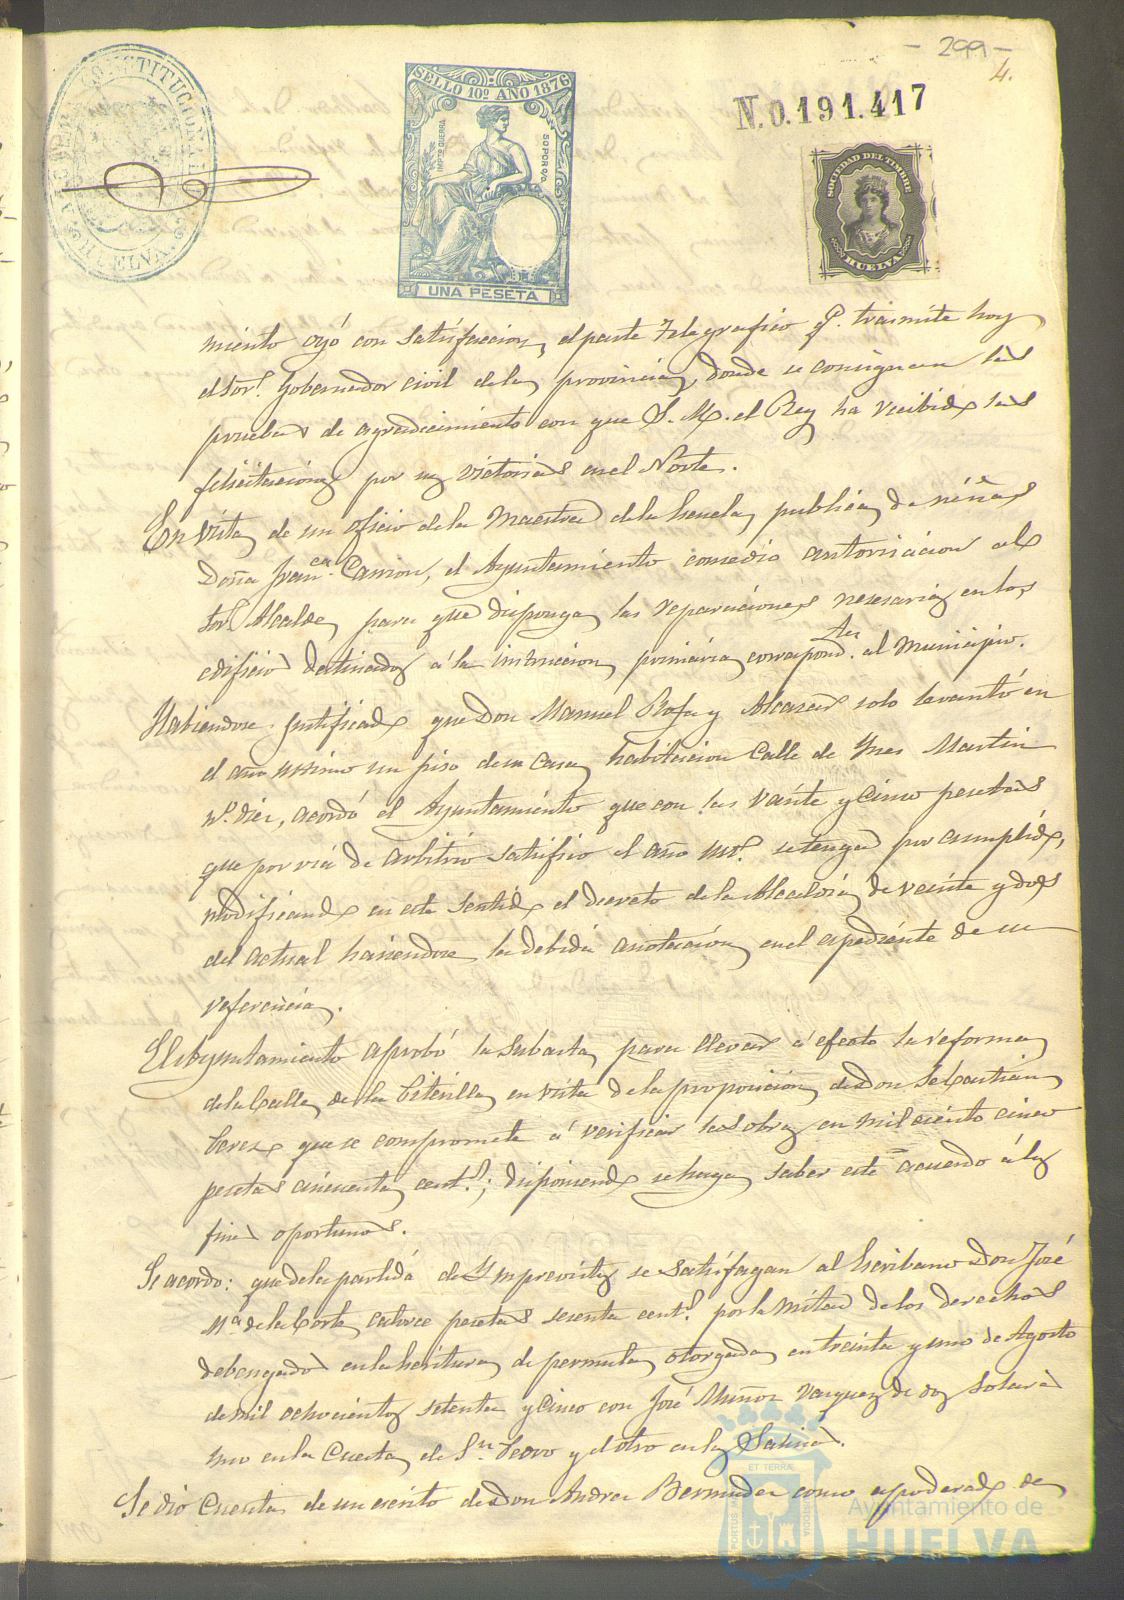 - 299 -
4.
AYUNTAMIENTO CONSTITUCIONAL
HUELVA
SELLO 10º AÑO 1876
IMPTO GUERRA
50 POR 0/0
UNA PESETA
N.0.191.417
SOCIEDAD DEL TIMBRE
HUELVA
miento oyó con satisfaccion, el parte Telegrafico q.e trasmite hoy
el Sor. Gobernador civil de la provincia, donde se consignan las
pruebas de agradecimiento con que S. M. el Rey ha recibido las
felicitaciones por sus victorias en el Norte.
En vista de un oficio de la Maestra de la Escuela publica de niñas
Doña Fran.ca Carrion, el Ayuntamiento concedio autorizacion al
Sor. Alcalde, para que disponga las reparaciones nesesarias en los
edificios destinados á la instruccion primaria correspond.tes al Municipio.
Habiendose justificado que Don Manuel Rofa y Alcazar solo levantó en
el año ultimo un piso de su casa habitacion Calle de Ynes Martin
nº diez, acordó el Ayuntamiento que con las vainte y cinco pesetas
que por via de arbitrio satisfizo el año ult.º se tenga por cumplido,
modificando en este sentido el decreto de la Alcaldia de veinte y dos
del actual haciendose la debida anotacion en el espediente de su
referencia.
El Ayuntamiento aprobó la subasta para llevar á efecto la reforma
de la Calle de la Citerilla en vista de la proposicion de Don Sebastian
Perez que se compromete á verificar las obras en mil ciento cinco
pesetas cincuenta cent.s; disponiendo se haga saber este acuerdo á los
fines oportunos.
Se acordo: que de la partida de Ymprevistos se satisfagan al Escribano Don José
Mª de la Corte catorce pesetas sesenta cent.s por la mitad de los derechos
debengados en la Escritura de permuta otorgada en treinta y uno de Agosto
de mil ochocientos setenta y cinco con José Muñoz Vazquez de dos solares
uno en la Cuesta de S.n Pedro y el otro en las Salinas.
Se dio cuenta de un escrito de Don Andres Bermudez como apoderado de
PORTUS MARIS
ET TERRAE
CUSTODIA
Ayuntamiento de
HUELVA